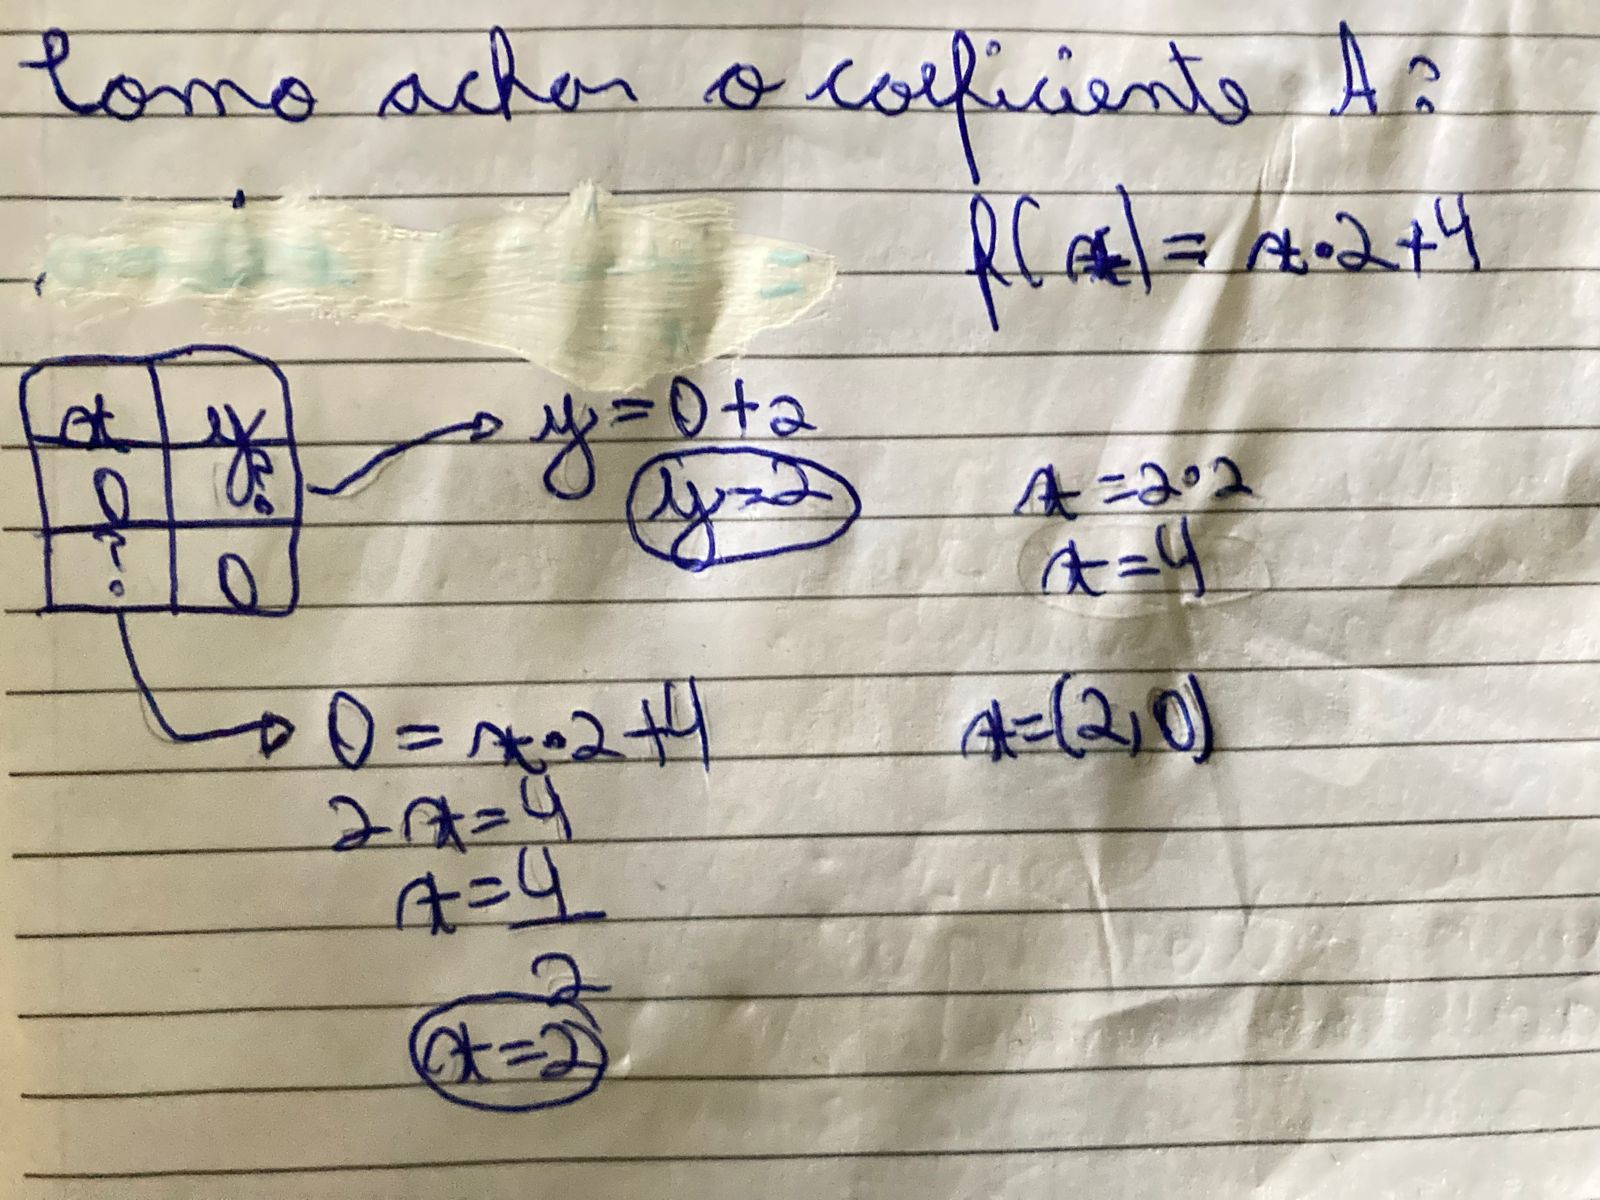 Como achar o coeficiente A?
f(x) = x•2+4
x y
0 ?
? 0
y = 0+2
y=2
x = 2•2
x = 4
0 = x•2+4
2x = 4
x = 4
2
x = 2
x=(2,0)